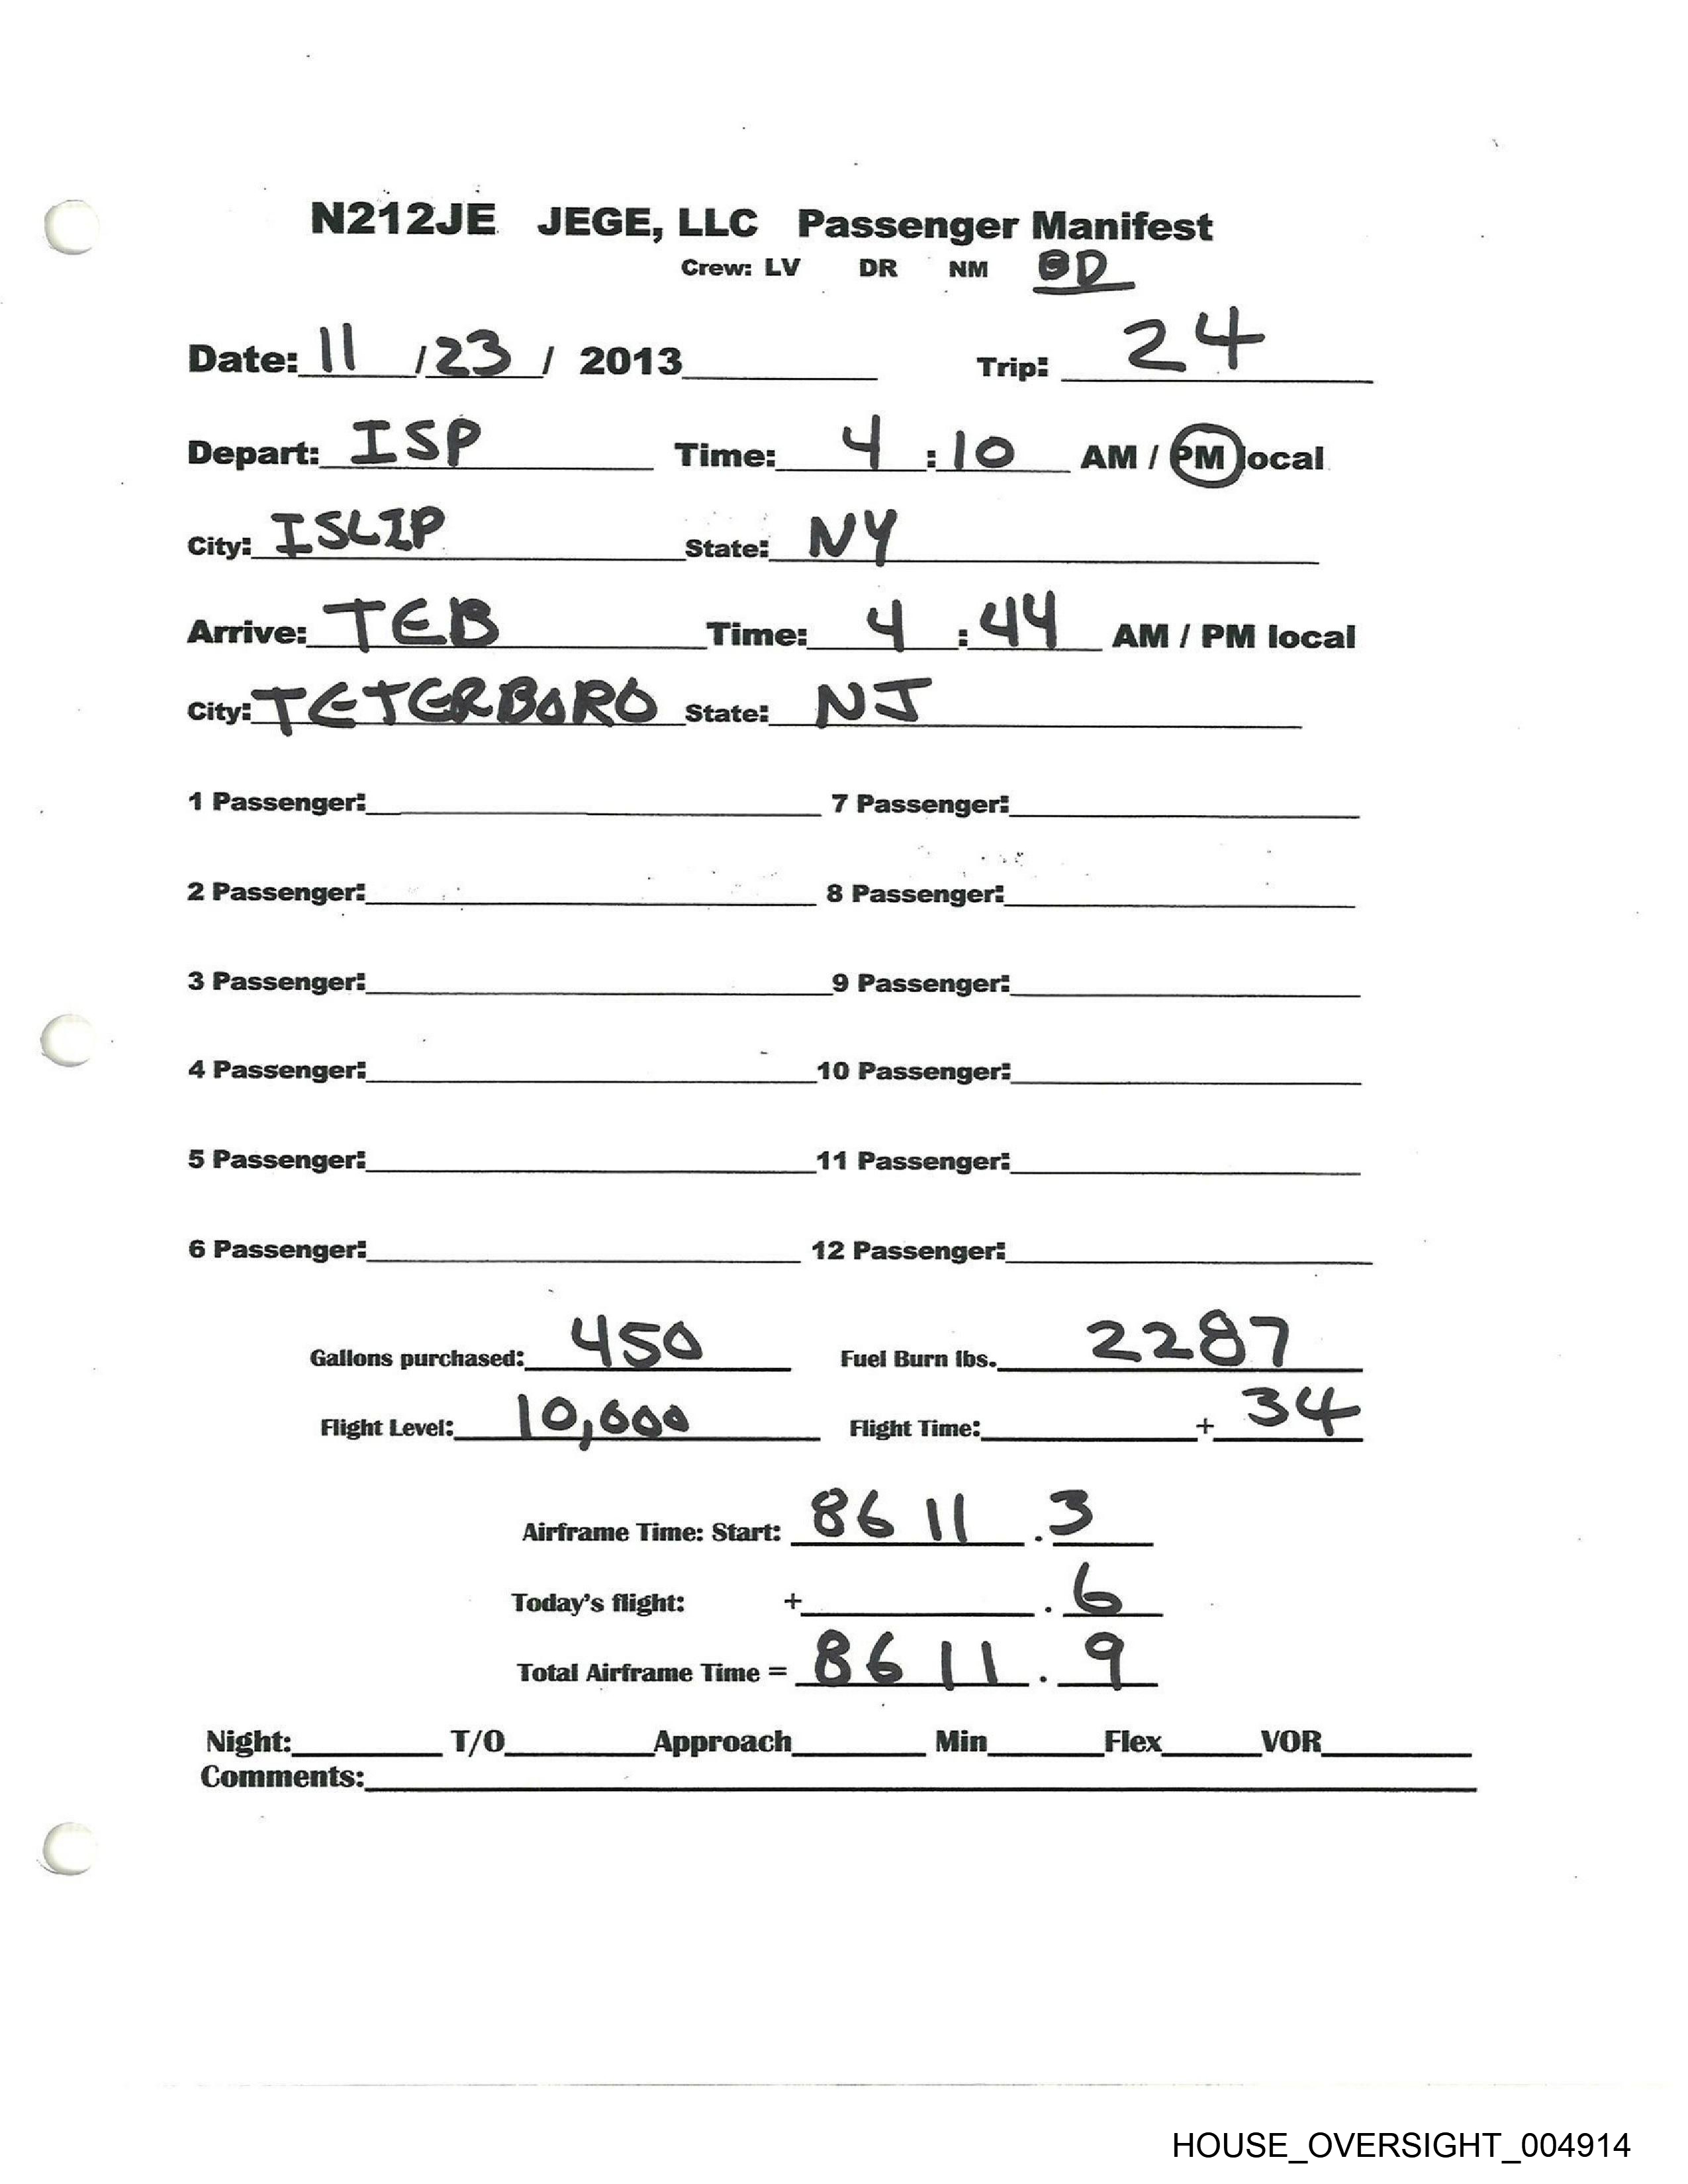 N212JE JEGE, LLC Passenger Manifest
Crew: LV DR NM GD
Date: 11 / 23 / 2013 Trip: 24
Depart: ISP Time: 4 : 10 AM / PM local
City: ISLIP State: NY
Arrive: TEB Time: 4 : 44 AM / PM local
City: TETERBORO State: NJ
1 Passenger: 7 Passenger:
2 Passenger: 8 Passenger:
3 Passenger: 9 Passenger:
4 Passenger: 10 Passenger:
5 Passenger: 11 Passenger:
6 Passenger: 12 Passenger:
Gallons purchased: 450 Fuel Burn lbs. 2287
Flight Level: 10,600 Flight Time: + 34
Airframe Time: Start: 8611 . 3
Today's flight: + . 6
Total Airframe Time = 8611 . 9
Night: T/O Approach Min Flex VOR
Comments:
HOUSE_OVERSIGHT_004914